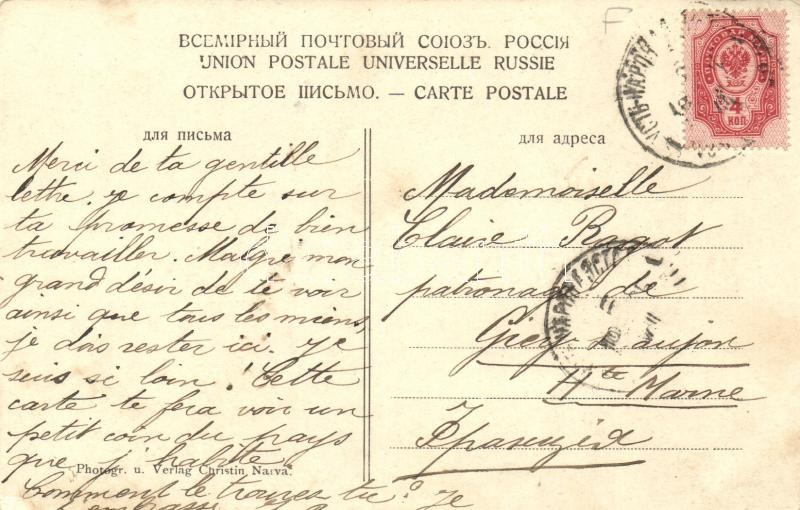 ВСЕМІРНЫЙ ПОЧТОВЫЙ СОЮЗЪ. РОССІЯ
UNION POSTALE UNIVERSELLE RUSSIE
ОТКРЫТОЕ ПИСЬМО. — CARTE POSTALE
для письма
Merci de ta gentille
lettre. je compte sur
ta promesse de bien
travailler. Malgré mon
grand désir de te voir
ainsi que tous les miens,
je dois rester ici. Je
suis si loin! Cette
carte te fera voir un
petit coin du pays
que j'habite.
Photogr. u. Verlag Christin Narva.
Comment le trouves tu? Je
для адреса
Mademoiselle
Claire
patronage de
Hte Marne
Франция
4
КОП